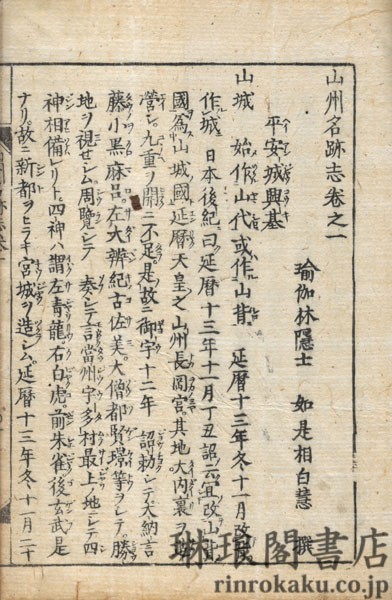 山州名跡志巻之一
瑜伽林隱士 如是相白慧 撰
平安城興基
山城 始作山代或作山背 延暦十三年冬十一月改
作城 日本後紀曰延暦十三年十一月丁丑詔云宜改山背
國為山城國延暦天皇之山州長岡宮其地大内裏ヲ
營シ九重ヲ開ニ不足是故ニ御宇十二年 詔勅シテ大納言
藤小黒麻呂左大辨紀古佐美大僧都賢璟等ヲシテ勝
地ヲ視セシム周覧シテ 奏シテ言當州宇多村最上ノ地ニシテ四
神相備レリト四神ハ謂左青龍右白虎前朱雀後玄武是
ナリ故ニ新都ヲヒラキ宮城ヲ造シム延暦十三年冬十一月二十
琳琅閣書店
rinrokaku.co.jp